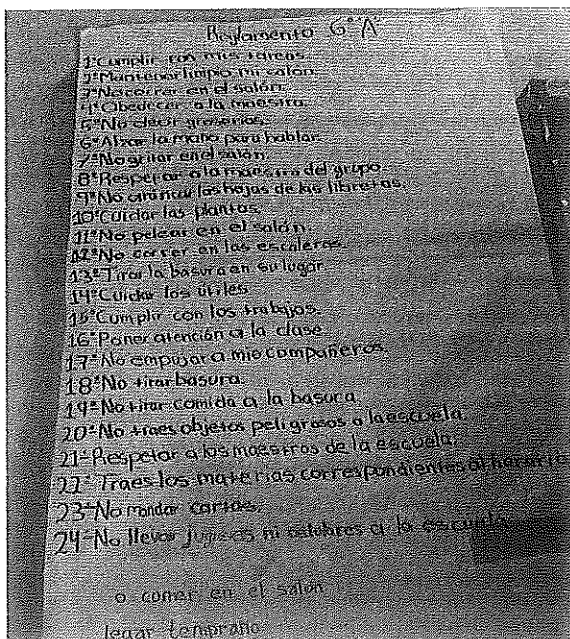 Reglamento 6° "A"
1° Cumplir con mis tareas.
2° Mantener limpio mi salón.
3° No correr en el salón.
4° Obedecer a la maestra.
5° No decir groserías.
6° Alzar la mano para hablar.
7° No gritar en el salón.
8° Respetar a la maestra del grupo.
9° No arrancar las hojas de las libretas.
10° Cuidar las plantas.
11° No pelear en el salón.
12° No correr en las escaleras.
13° Tirar la basura en su lugar.
14° Cuidar los útiles
15° Cumplir con los trabajos.
16° Poner atención a la clase.
17° No empujar a mis compañeros.
18° No tirar basura.
19° No tirar comida a la basura.
20° No traes objetos peligrosos a la escuela.
21° Respetar a los maestros de la escuela.
22° Traes las materias correspondientes al horario
23° No mandar cartas.
24° No llevar ni a la escuela
o comer en el salon
legar temprano